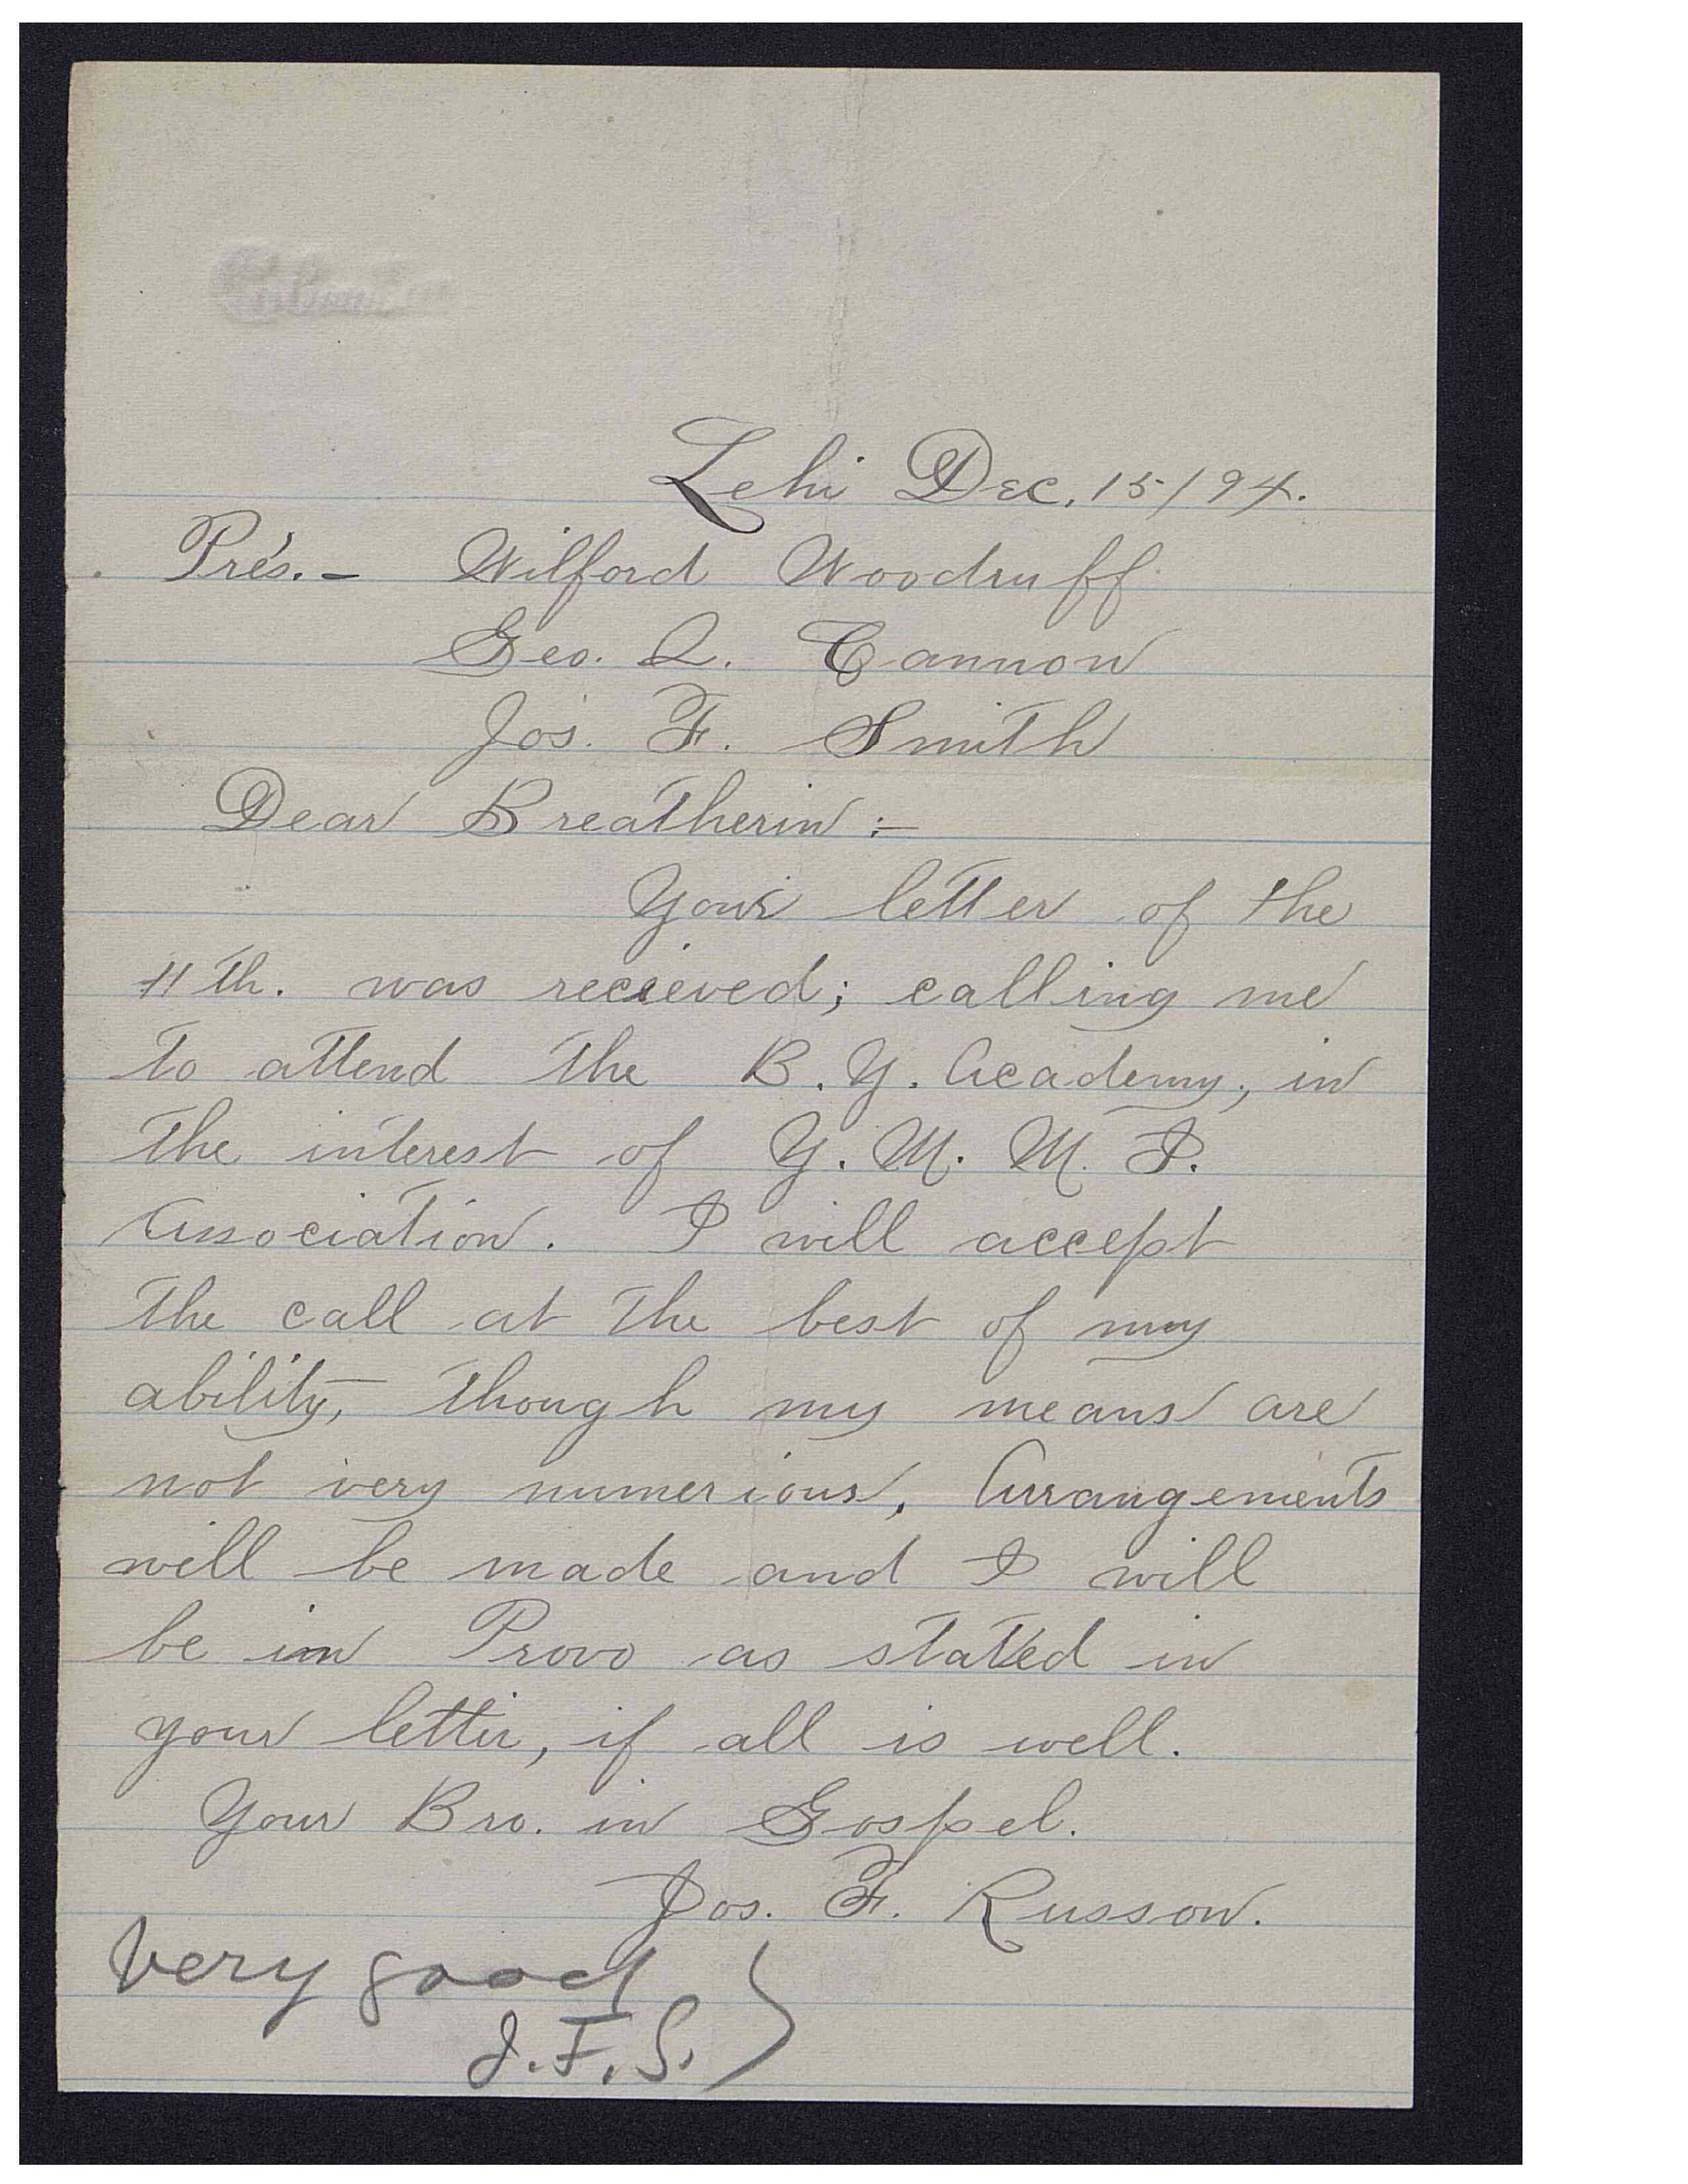 Lehi Dec. 15/94.
Pres. - Wilford Woodruff
Geo. Q. Cannon
Jos. F. Smith
Dear Breatherin :-
Your letter of the
11th. was recieved; calling me
to attend the B. Y. Academy, in
the interest of Y. M. M. I.
Association. I will accept
the call at the best of my
ability, though my means are
not very numerious, Arrangements
will be made and I will
be in Provo as stated in
your letter, if all is well.
Your Bro. in Gospel.
Jos. F. Russon.
Very good
J. F. S.